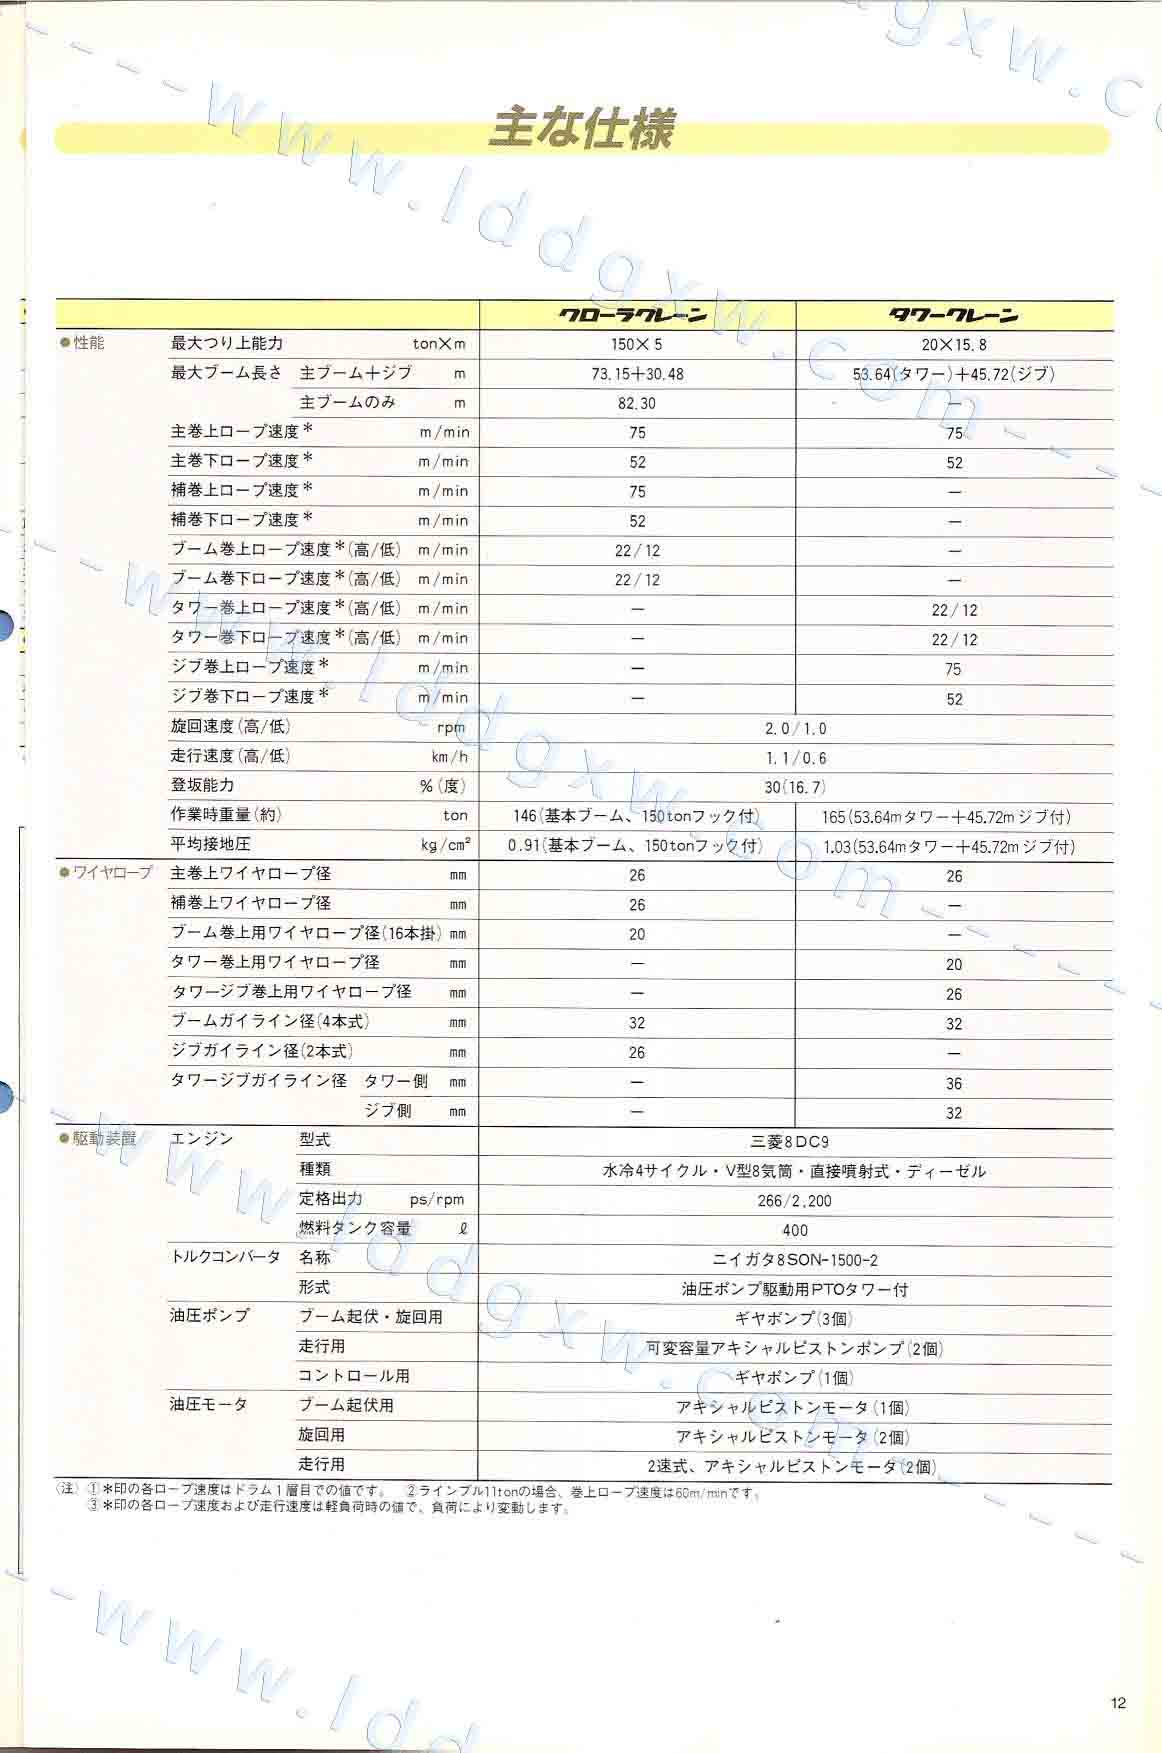 主な仕様
クローラクレーン タワークレーン
●性能 最大つり上能力 ton×m 150×5 20×15.8
最大ブーム長さ 主ブーム+ジブ m 73.15+30.48 53.64(タワー)+45.72(ジブ)
主ブームのみ m 82.30 —
主巻上ロープ速度* m/min 75 75
主巻下ロープ速度* m/min 52 52
補巻上ロープ速度* m/min 75 —
補巻下ロープ速度* m/min 52 —
ブーム巻上ロープ速度*(高/低) m/min 22/12 —
ブーム巻下ロープ速度*(高/低) m/min 22/12 —
タワー巻上ロープ速度*(高/低) m/min — 22/12
タワー巻下ロープ速度*(高/低) m/min — 22/12
ジブ巻上ロープ速度* m/min — 75
ジブ巻下ロープ速度* m/min — 52
旋回速度(高/低) rpm 2.0/1.0
走行速度(高/低) km/h 1.1/0.6
登坂能力 %(度) 30(16.7)
作業時重量(約) ton 146(基本ブーム、150tonフック付) 165(53.64mタワー+45.72mジブ付)
平均接地圧 kg/cm² 0.91(基本ブーム、150tonフック付) 1.03(53.64mタワー+45.72mジブ付)
●ワイヤロープ 主巻上ワイヤロープ径 mm 26 26
補巻上ワイヤロープ径 mm 26 —
ブーム巻上用ワイヤロープ径(16本掛) mm 20 —
タワー巻上用ワイヤロープ径 mm — 20
タワージブ巻上用ワイヤロープ径 mm — 26
ブームガイライン径(4本式) mm 32 32
ジブガイライン径(2本式) mm 26 —
タワージブガイライン径 タワー側 mm — 36
ジブ側 mm — 32
●駆動装置 エンジン 型式 三菱8DC9
種類 水冷4サイクル・V型8気筒・直接噴射式・ディーゼル
定格出力 ps/rpm 266/2,200
燃料タンク容量 ℓ 400
トルクコンバータ 名称 ニイガタ8SON-1500-2
形式 油圧ポンプ駆動用PTOタワー付
油圧ポンプ ブーム起伏・旋回用 ギヤポンプ(3個)
走行用 可変容量アキシャルピストンポンプ(2個)
コントロール用 ギヤポンプ(1個)
油圧モータ ブーム起伏用 アキシャルピストンモータ(1個)
旋回用 アキシャルピストンモータ(2個)
走行用 2速式、アキシャルピストンモータ(2個)
(注) ①*印の各ロープ速度はドラム1層目での値です。 ②ラインプル11tonの場合、巻上ロープ速度は60m/minです。
③*印の各ロープ速度および走行速度は軽負荷時の値で、負荷により変動します。
12
----www.lddgxw.com----
----www.lddgxw.com----
----www.lddgxw.com----
--www.ldd
dgxw.co